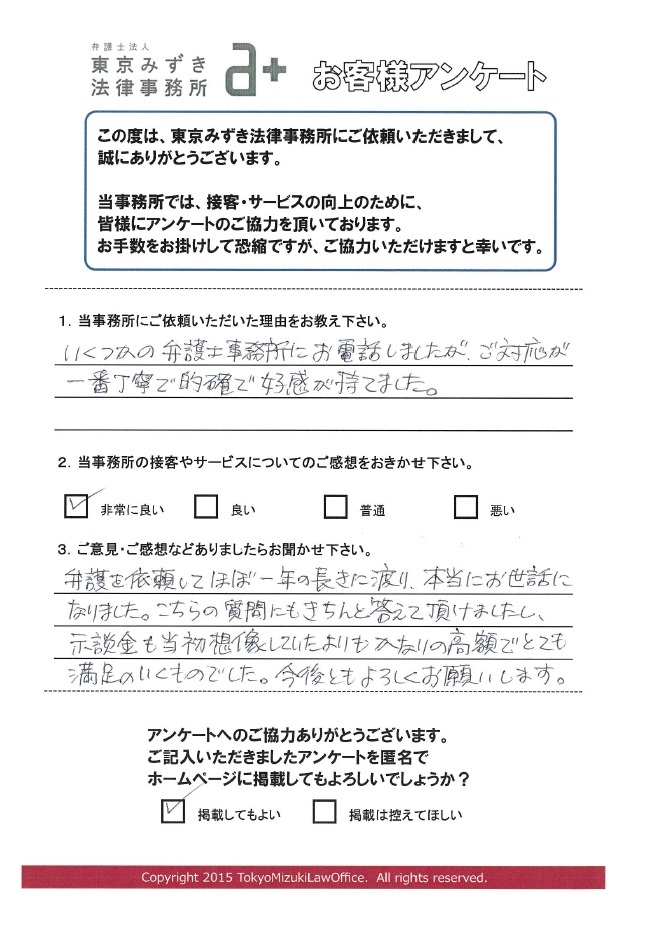 弁護士法人
東京みずき
法律事務所
a+
お客様アンケート
この度は、東京みずき法律事務所にご依頼いただきまして、
誠にありがとうございます。
当事務所では、接客・サービスの向上のために、
皆様にアンケートのご協力を頂いております。
お手数をお掛けして恐縮ですが、ご協力いただけますと幸いです。
1．当事務所にご依頼いただいた理由をお教え下さい。
いくつかの弁護士事務所にお電話しましたが、ご対応が
一番丁寧で的確で好感が持てました。
2．当事務所の接客やサービスについてのご感想をおきかせ下さい。
非常に良い 良い 普通 悪い
3．ご意見・ご感想などありましたらお聞かせ下さい。
弁護を依頼してほぼ一年の長きに渡り、本当にお世話に
なりました。こちらの質問にもきちんと答えて頂けましたし、
示談金も当初想像していたよりもかなりの高額でとても
満足のいくものでした。今後ともよろしくお願いします。
アンケートへのご協力ありがとうございます。
ご記入いただきましたアンケートを匿名で
ホームページに掲載してもよろしいでしょうか？
掲載してもよい 掲載は控えてほしい
Copyright 2015 TokyoMizukiLawOffice. All rights reserved.